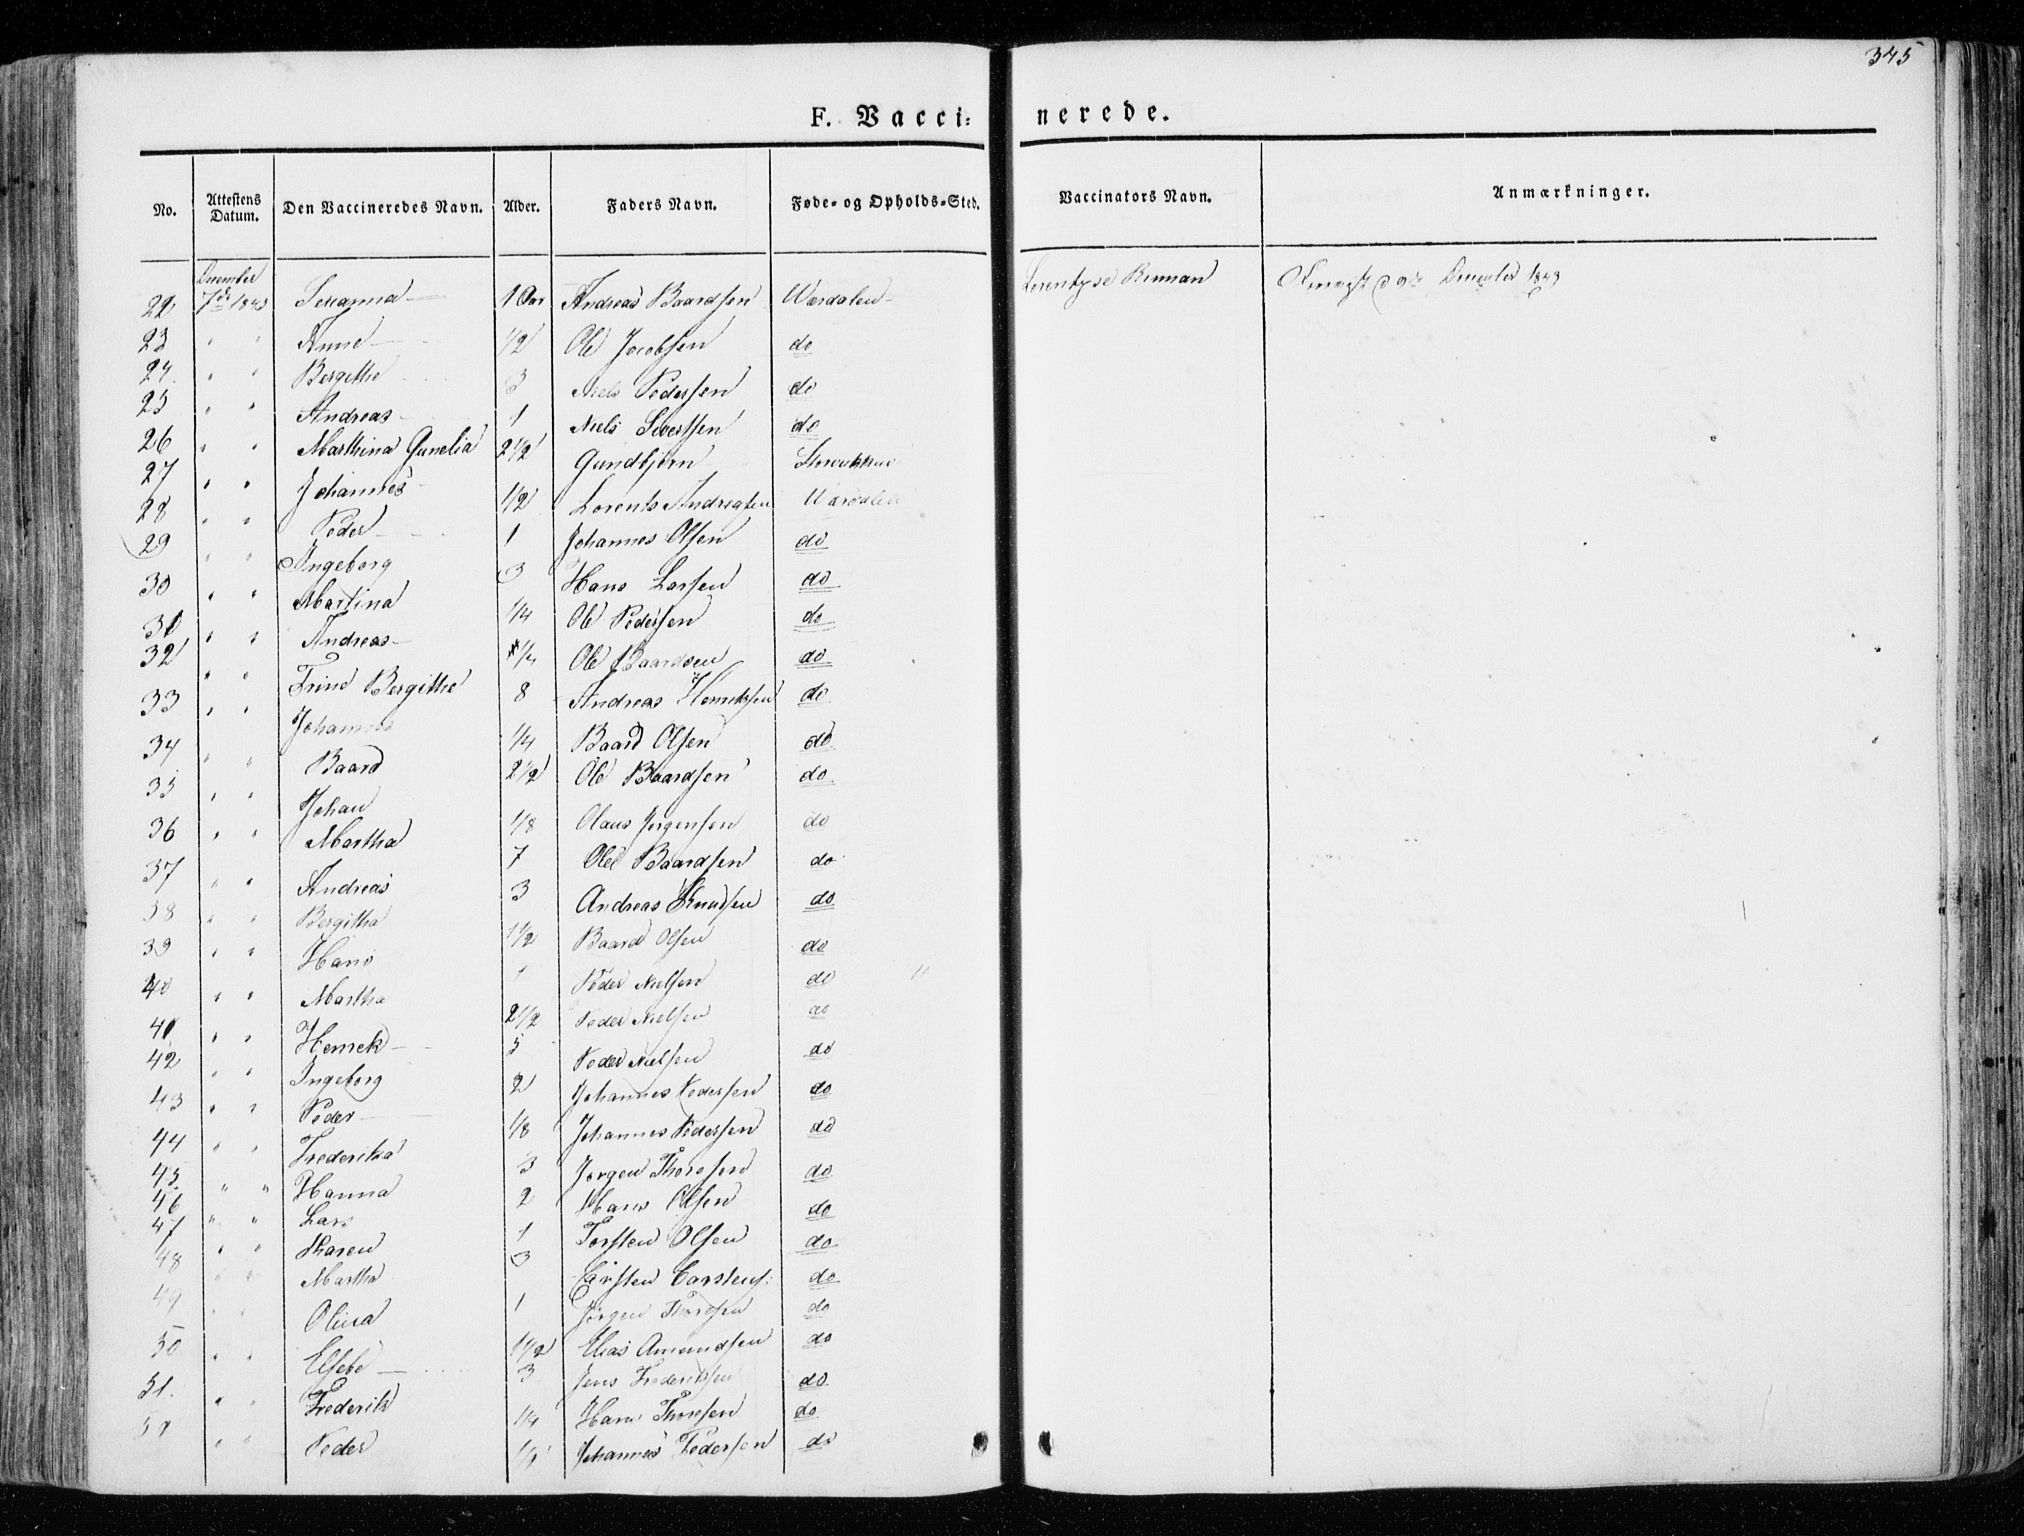 345
F. Vacci= nerede.
No. Attestens Datum. Den Vaccineredes Navn. Alder. Faders Navn. Føde- og Opholds-Sted. Vaccinators Navn. Anmærkninger.
December
22 7de 1843 1 Aar Andreas Baardsen Værdalen December 1843
23 " " Anne 1/2 Ole Jacobsen do
24. " " Bergithe 3 Niels Pedersen do
25 " " Andreas 1 Niels Sivertsen do
26 " " Marthina Gunelia 2 1/2 Gundbjørn
27 " " Johannes 1/2 Lorents Andreasen Værdalen
28 " " Peder 1 Johannes Olsen do
29 " " Ingeborg 3 Hans Larsen do
30 " " Martina 1/4 Ole Pedersen do
31 " " Andreas 1/4 Ole Baardsen do
32 " " Trine Bergithe 8 Andreas Henriksen do
33 " " Johannes 1/4 Baard Olsen do
34 " " Baard 2 1/2 Ole Baardsen do
35 " " Johan 1/8 Olaus Jørgensen do
36 " " Martha 7 Ole Baardsen do
37 " " Andreas 3 Andreas Knudsen do
38 " " Bergitha 1 1/2 Baard Olsen do
39 " " Hans 1 Peder Nielsen do
40 " " Martha 2 1/2 Peder Nielsen do
41 " " Henrek 5 Peder Nielsen do
42 " " Ingeborg 2 Johannes Pedersen do
43 " " Peder 1/8 Johannes Pedersen do
44 " " Frederika 3 Jørgen Thoresen do
45. " " Hanna 2 Hans Olsen do
46 " " Lars 1 Torsten Olsen do
47 " " Karen 3 Carsten Carstens: do
48 " " Martha 1 Jørgen Thoresen do
49 " " Olina 1 1/2 Elias Amundsen do
50 " " Elsebe 3 Jens Frederiksen do
51. " " Frederik 1/4 Hans Thoresen do
52 " " Peder Johannes Pedersen do